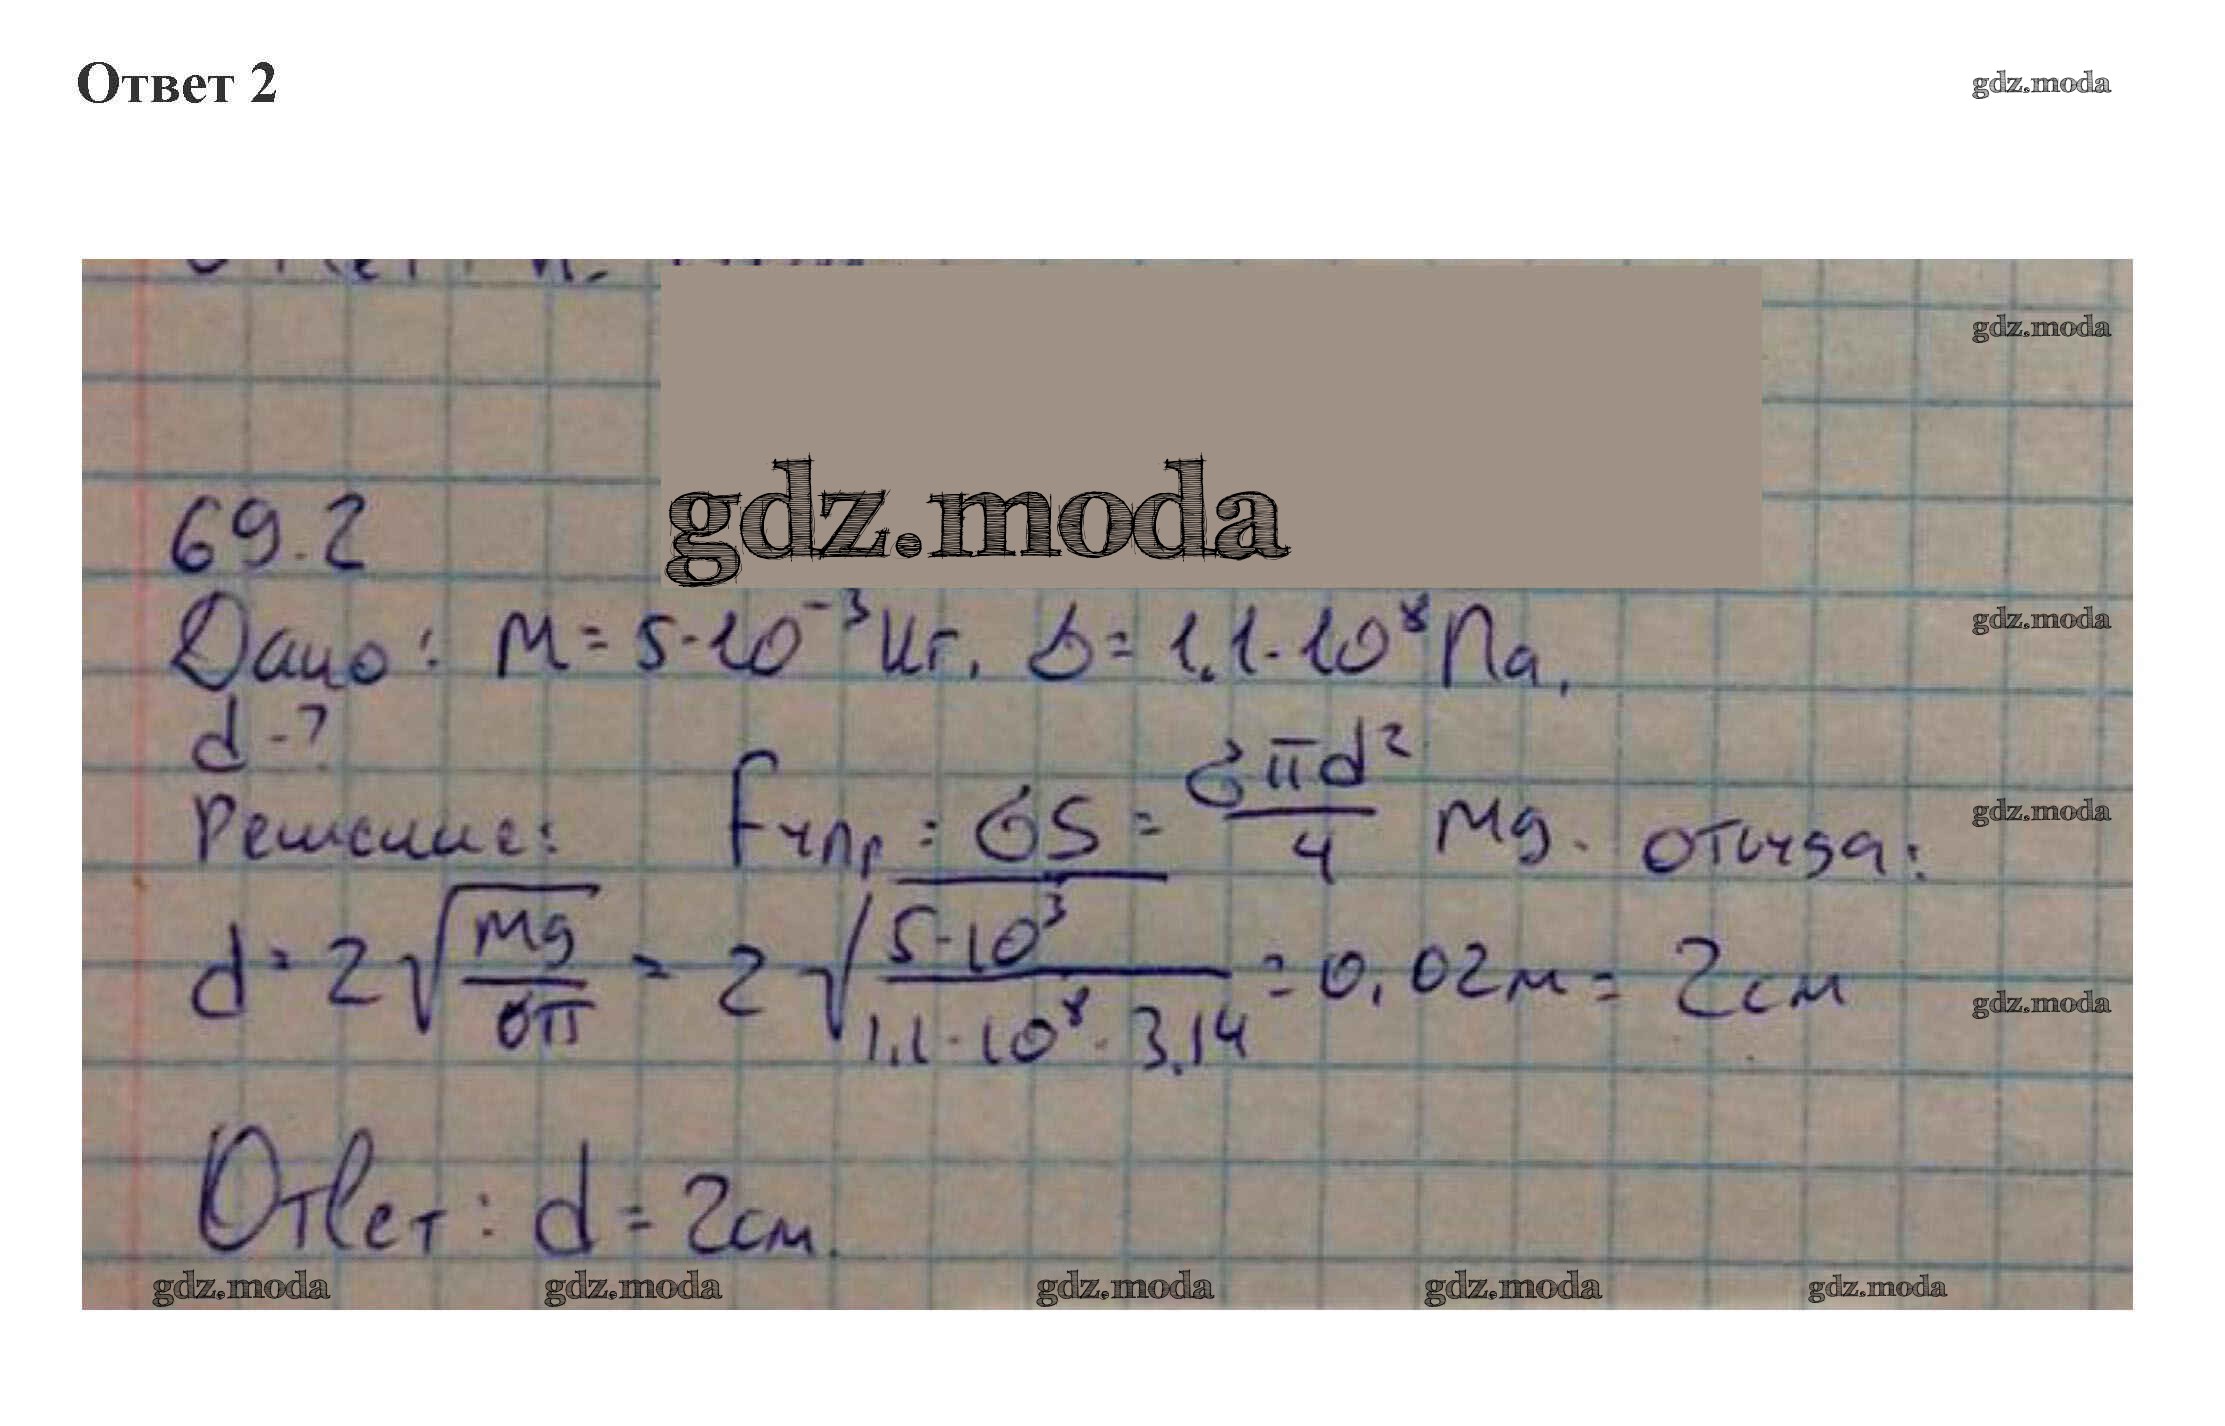 Ответ 2
gdz.moda
gdz.moda
gdz.moda
69.2
Дано: m = 5·10⁻³ кг. σ = 1.1·10⁸ Па.
gdz.moda
d - ?
Решение: Fупр = σS = σπd²/4 mg. откуда:
gdz.moda
d = 2√(mg/σπ) = 2√(5·10³/1.1·10⁸·3.14) = 0,02м = 2см
gdz.moda
Ответ: d = 2см.
gdz.moda gdz.moda gdz.moda gdz.moda gdz.moda